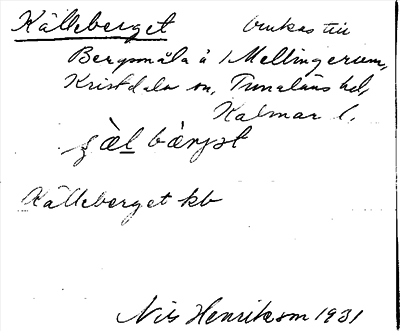 Källeberget brukas till
Bergsmåla å 1 Mellingerum,
Kristdala sn, Tunaläns hd,
Kalmar l.
Källeberget kb
Nils Henrikson 1931